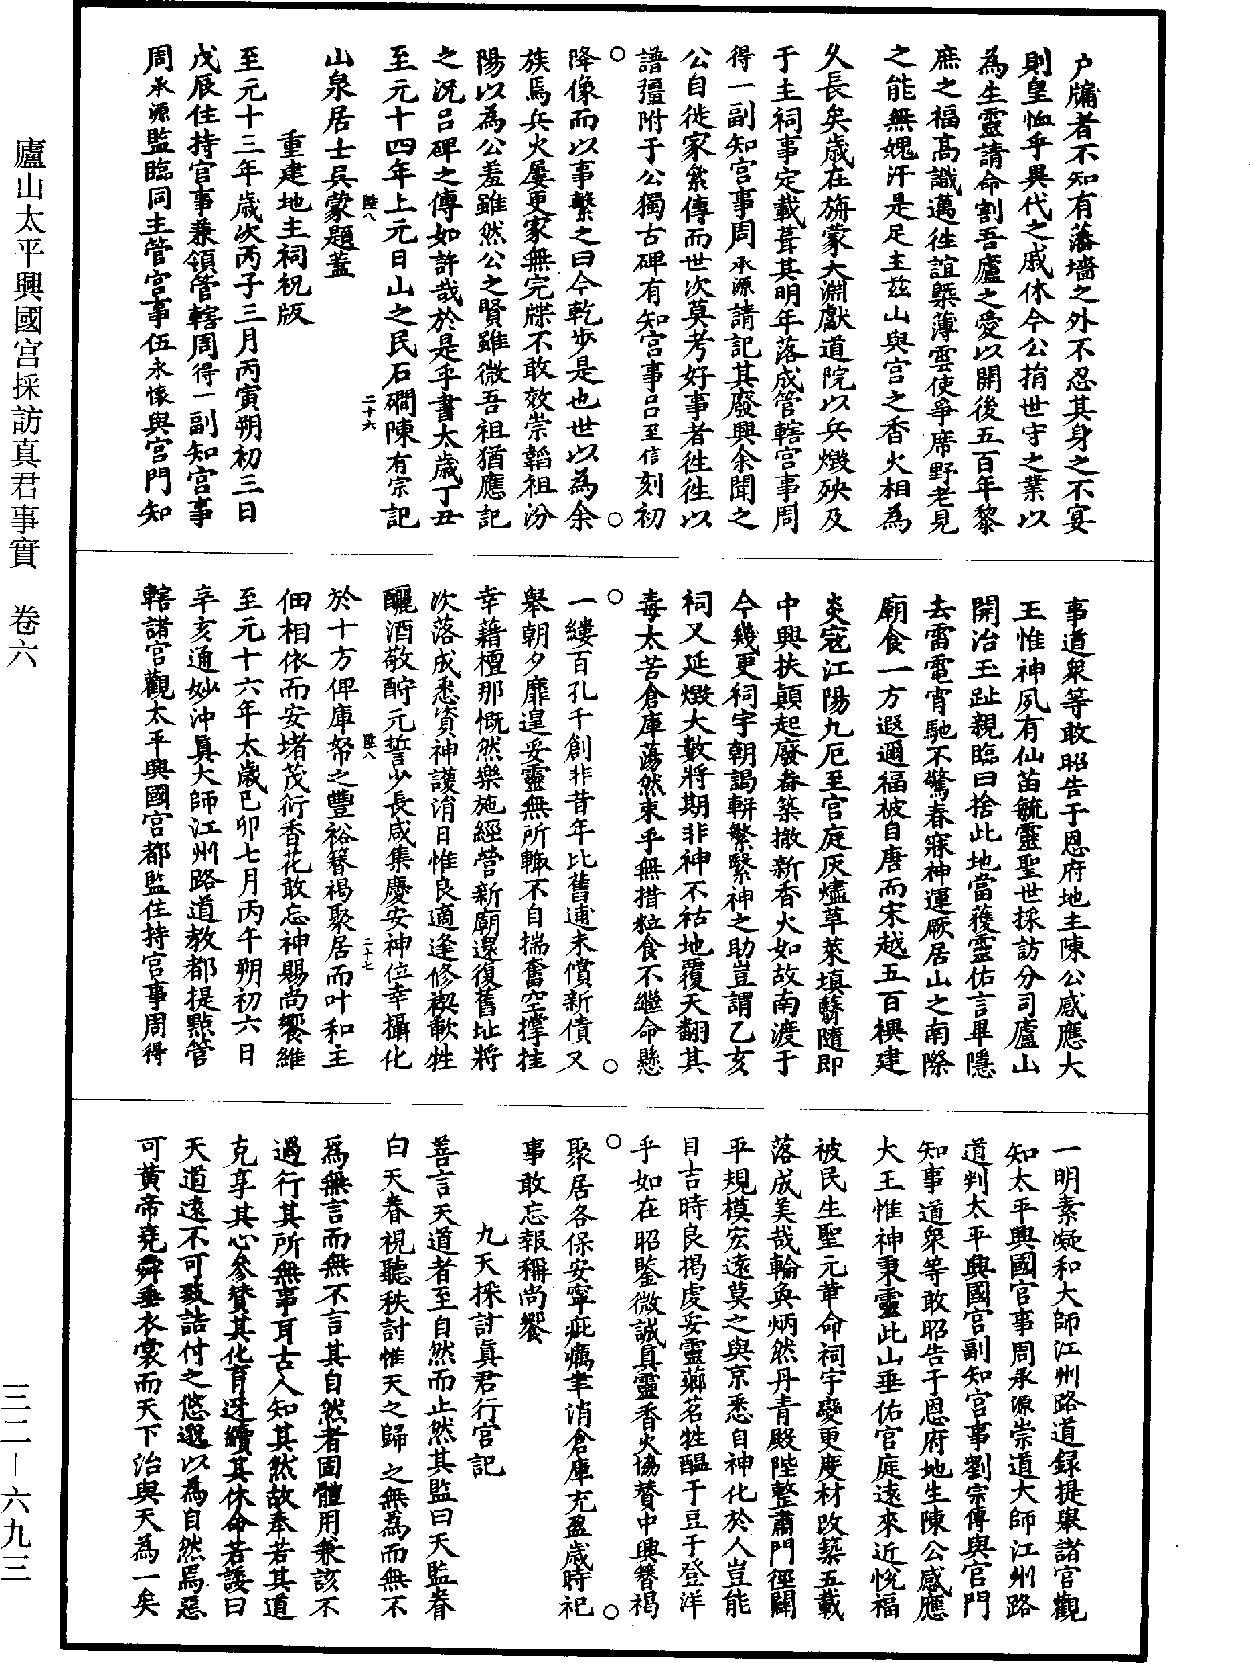 廬山太平興國宮採訪真君事實　卷六
三二—六九三
户牖者不知有藩墻之外不忍其身之不宴
則皇恤乎異代之戚休今公捐世守之業以
為生靈請命割吾廬之愛以開後五百年黎
庶之福高識邁徃誼槩薄雲使爭席野老見
之能無媿汗是足主兹山與宮之香火相為
久長矣歲在旃蒙大淵獻道院以兵燬殃及
于主祠事定載葺其明年落成管轄宮事周
得一副知宮事周承源請記其廢興余聞之
公自徙家絫傳而世次莫考好事者徃徃以
譜彊附于公獨古碑有知宮事呂至信刻初
降像而以事繫之曰今乾步是也世以為余
族焉兵火屢更家無完牒不敢效崇韜祖汾
陽以為公羞雖然公之賢雖微吾祖猶應記
之況呂碑之傳如許哉於是乎書太歲丁丑
至元十四年上元日山之民石磵陳有宗記
陸八　二十六
山泉居士吳蒙題蓋
重建地主祠祝版
至元十三年歲次丙子三月丙寅朔初三日
戊辰住持宮事兼領管轄周得一副知宮事
周承源監臨同主管宮事伍永懷與宮門知
事道衆等敢昭告于恩府地主陳公感應大
王惟神夙有仙苗毓靈聖世採訪分司廬山
開治玉趾親臨曰捨此地當獲靈佑言畢隱
去雷電宵馳不驚春寐神運厥居山之南際
廟食一方遐邇福被自唐而宋越五百禩建
炎寇江陽九厄至宮庭灰燼草萊填翳隨即
中興扶顛起廢畚築撤新香火如故南渡于
今幾更祠宇朝謁駢繁緊神之助豈謂乙亥
祠又延燬大數將期非神不祜地覆天翻其
毒太苦倉庫蕩然束手無措粒食不繼命懸
一縷百孔千創非昔年比舊逋未償新債又
舉朝夕靡遑妥靈無所輙不自揣奮空撐拄
幸藉檀那慨然樂施經營新廟還復舊址將
次落成悉資神護涓日惟良適逢修禊歃牲
釃酒敬酹元誓少長咸集慶安神位幸攝化
陸八　二十七
於十方俾庫帑之豐裕簪褐聚居而叶和主
佃相依而安堵茂衍香花敢忘神賜尚饗維
至元十六年太歲已卯七月丙午朔初六日
辛亥通妙沖真大師江州路道教都提點管
轄諸宮觀太平興國宮都監住持宮事周得
一明素凝和大師江州路道錄提舉諸宮觀
知太平興國宮事周承源崇道大師江州路
道判太平興國宮副知宮事劉宗傳與宮門
知事道衆等敢昭告于恩府地主陳公感應
大王惟神秉靈此山垂佑宮庭遠來近悅福
被民生聖元革命祠宇變更度材改築五載
落成美哉輪奐炳然丹青殿陛整肅門徑闢
平規模宏遠莫之與京悉自神化於人豈能
目吉時良揭虔妥靈蘋茗牲醞于豆于登洋
乎如在昭鑒微誠真靈香火協贊中興簪褐
聚居各保安寧疵癘聿消倉庫充盈歲時祀
事敢忘報稱尚饗
九天採訪真君行宮記
善言天道者至自然而止然其監曰天監眷
曰天眷視聽秩討惟天之歸之無為而無不
為無言而無不言其自然者固體用兼該不
過行其所無事耳古人知其然故奉若其道
克享其心參贊其化育迓續其休命若諉曰
天道遠不可致詰付之悠邈以為自然焉惡
可黃帝堯舜垂衣裳而天下治與天為一矣